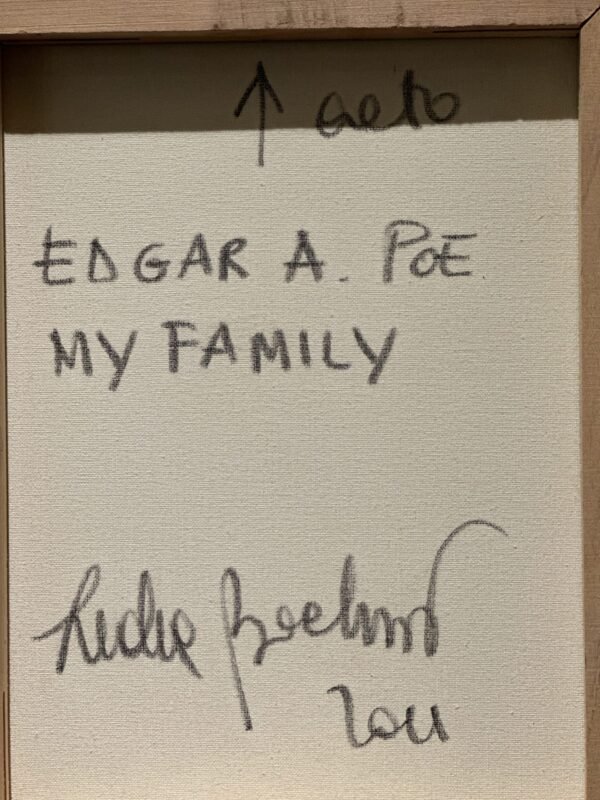 ↑ alto
EDGAR A. POE
MY FAMILY
Lidia Bachis
2011